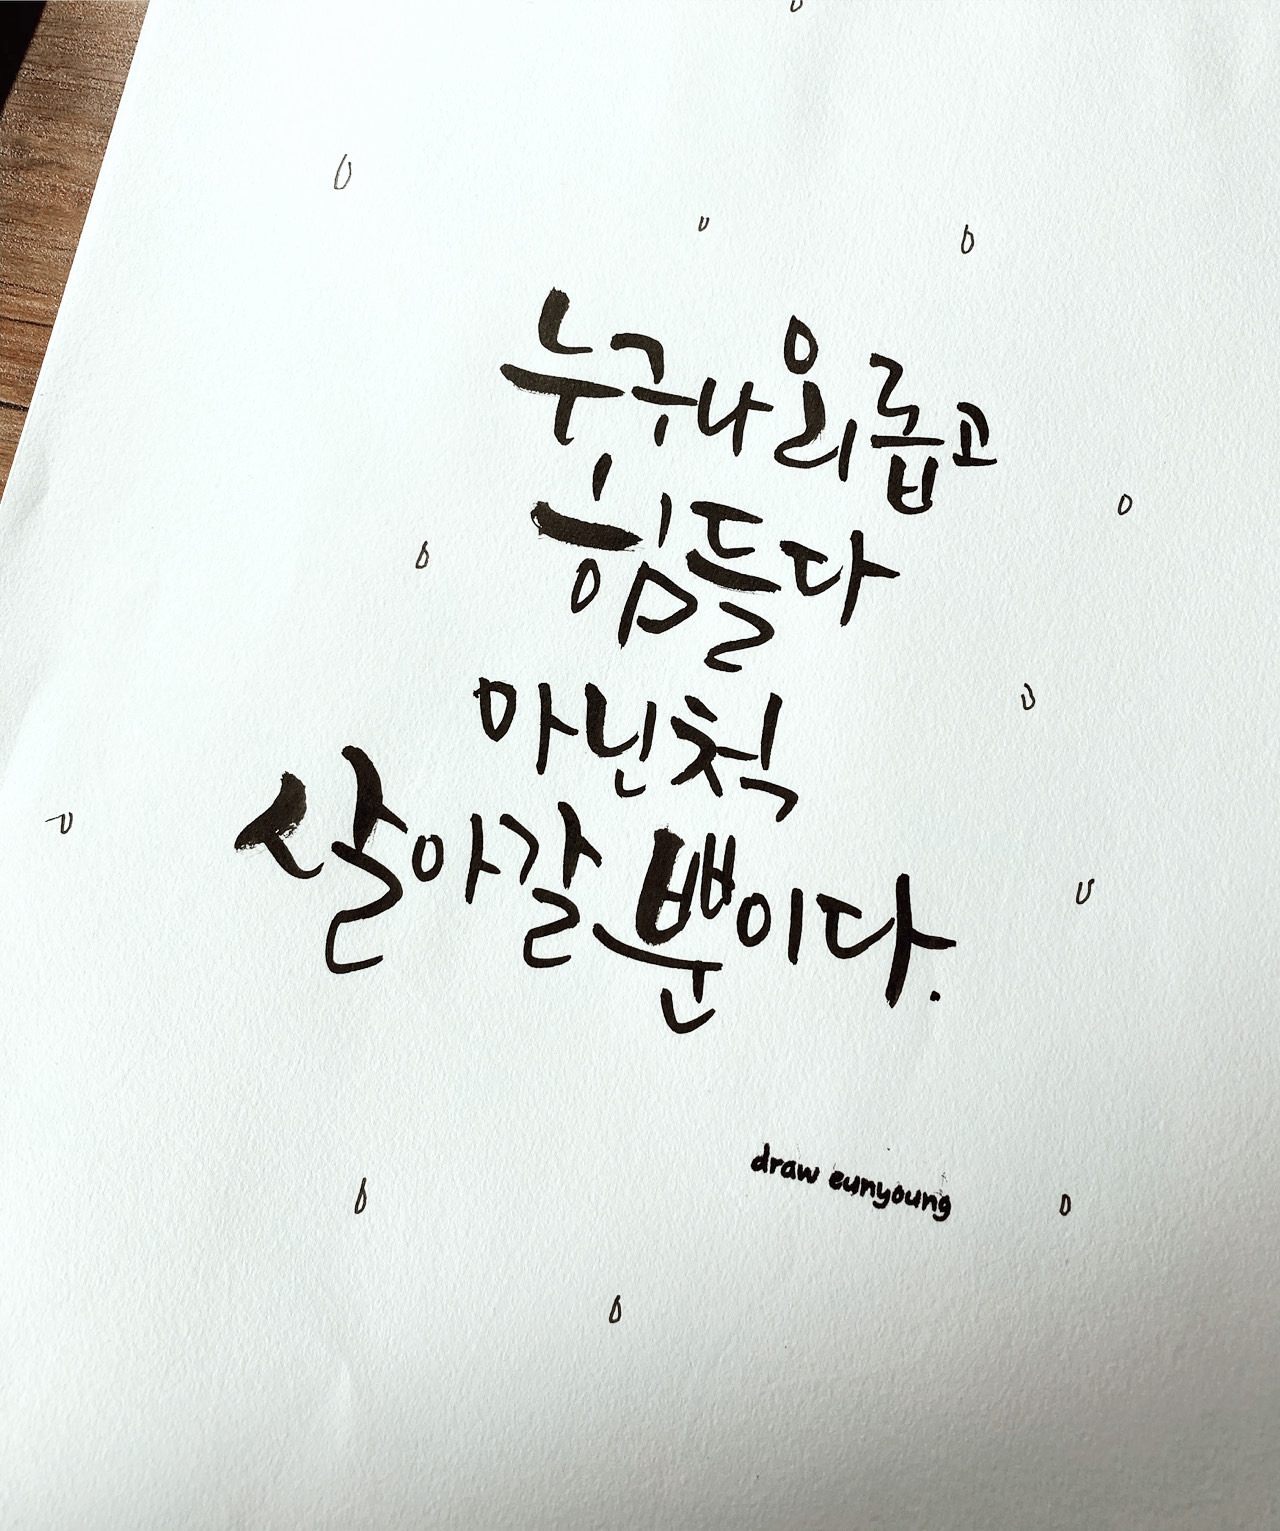 누구나 외롭고
힘들다
아닌척
살아갈 뿐이다.
draw eunyoung